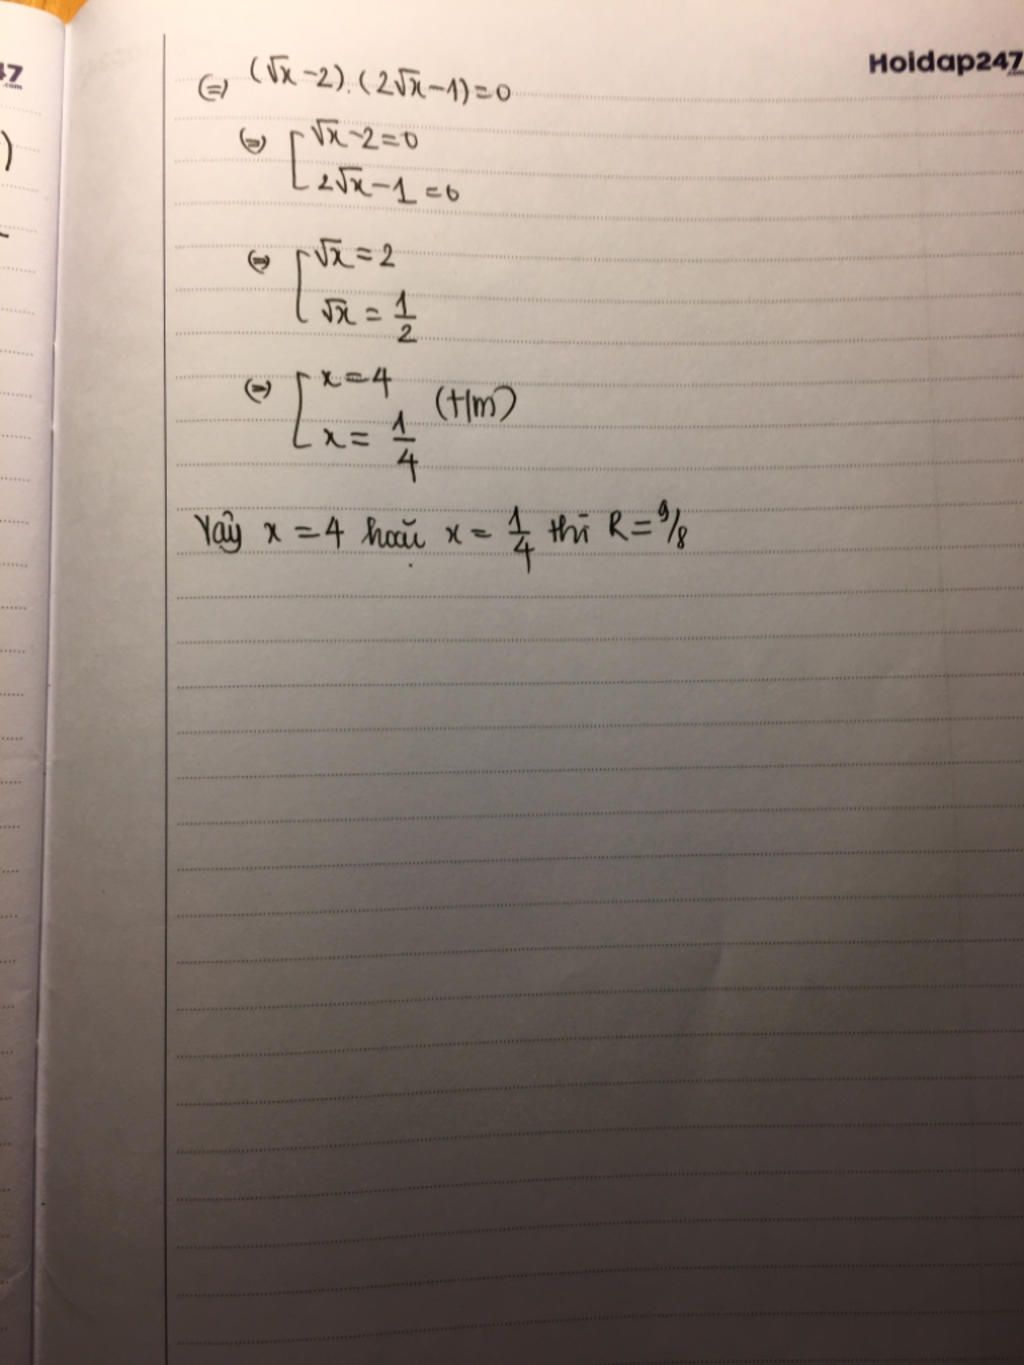 Hoidap247
.com
47
.com
)
(=) (√x-2).(2√x-1)=0
(=) [ √x-2=0
2√x-1=0
(=) [ √x=2
√x=1/2
(=) [ x=4
x=1/4 (t/m)
Vậy x=4 hoặc x=1/4 thì R=9/8